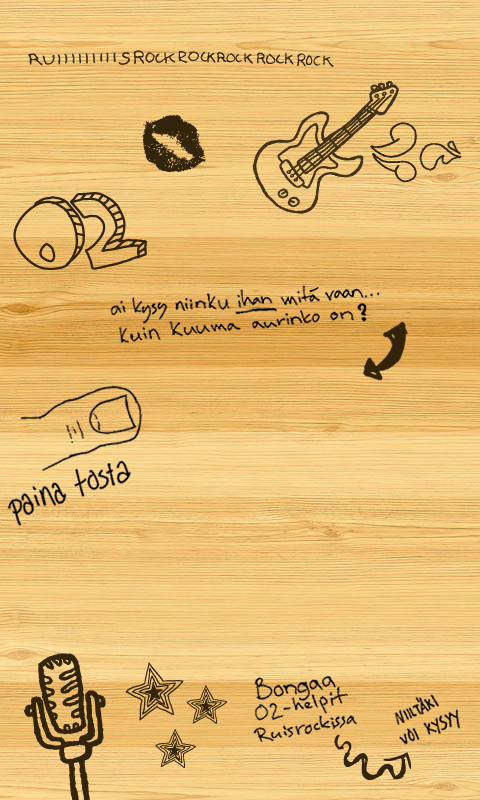 RUIIIIIIIIIISROCKROCKROCKROCKROCK
O2
ai kysy niinku ihan mitä vaan...
kuin kuuma aurinko on?
paina tosta
Bongaa
O2-helpit
Ruisrockissa
NIILTÄKI
VOI KYSYY